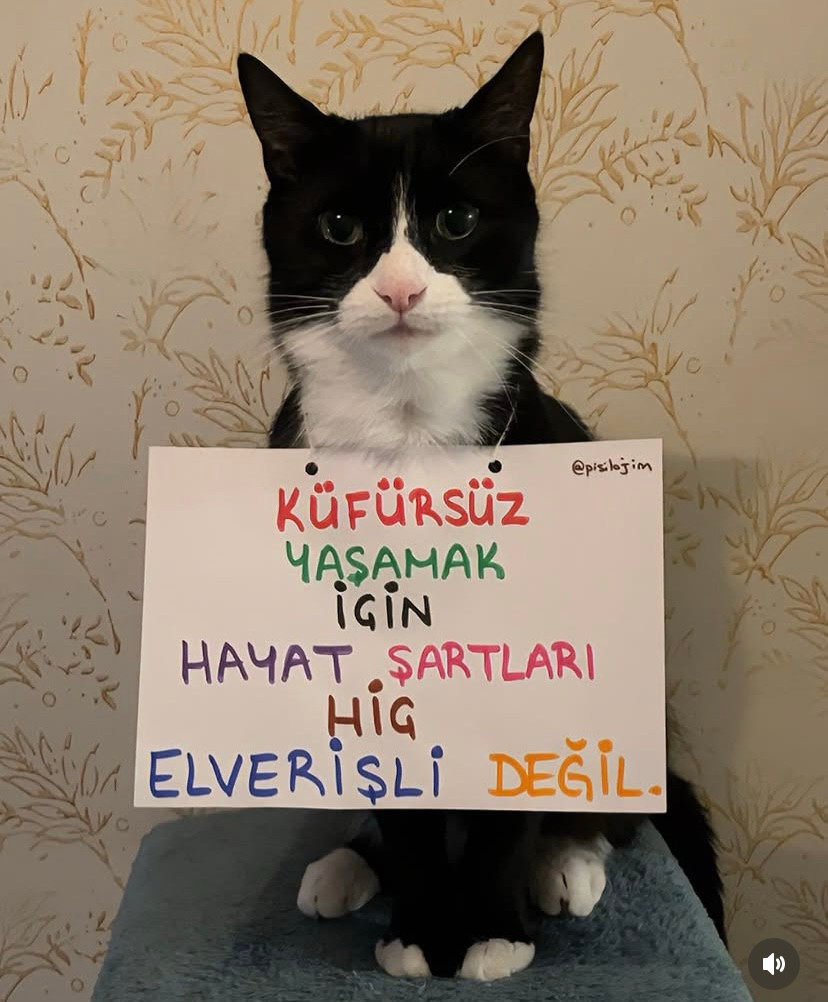 @pisilojim
KÜFÜRSÜZ
YAŞAMAK
İÇİN
HAYAT ŞARTLARI
HİÇ
ELVERİŞLİ DEĞİL.